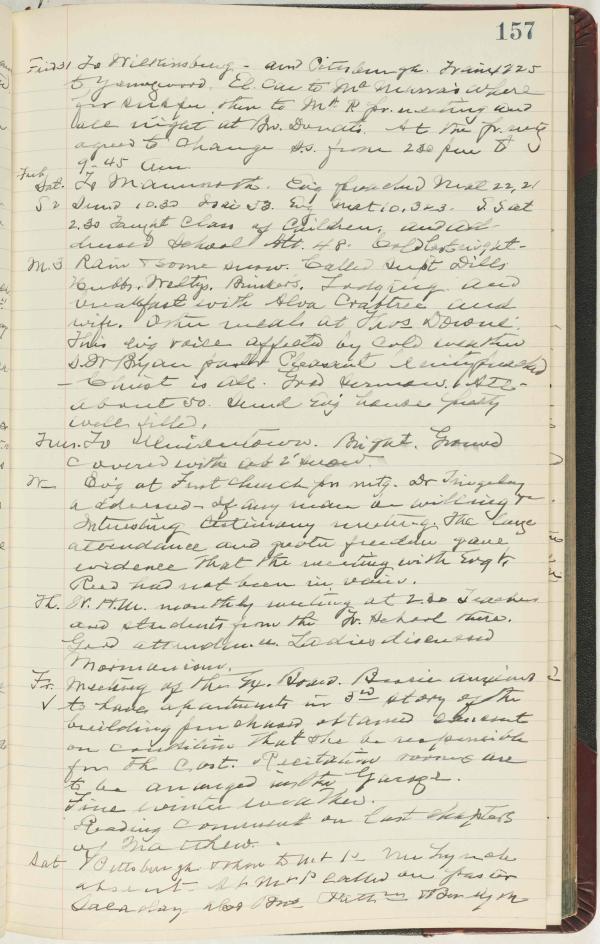 157
Fri 31 To Wilkinsburg - and Pittsburgh. Train 4 225
to Ya wood. El. Car to Mc Murras where
for supper then to Mt P. pr. meeting and
all night at Bro. Donats. At the pr. mtg
agreed to change S.S. from 2 30 p.m. to
9-45 a.m.
Feb.
Sat. To Mammoth. Evg preached Mat 22, 21
S 2 Sund 10.30 Isai 53. Evg Mat 10, 323. S.S at
2.30 Taught Class of Children, and ad-
dressed School Att. 48. Cold last night-
M. 3 Rain & some snow. Called Supt Dills
Hubbs. Weltys. Binkers. Lodging and
breakfast with Alva Crabtree and
wife. Other meals at Thos
This evg voice affected by cold weather
& Dr Bryan pastor Pleasant Unity preached
- Christ is all. Good Sermon. Att-
about 50. Sund Evg house pretty
well filled.
Tues. To Uniontown. Bright. Ground
covered with ab 2" snow.
W Evg at First Church pr mtg. Dr
addressed - If any man be willing &
Interesting testimony meeting. The large
attendance and greater freedom gave
evidence that the meeting with Evgt
Reed had not been in vain.
Th. W. H. M. monthly meeting at 2.30 Teachers
and students from the Tr. School there.
Good attendance. Ladies discussed
Mormonism.
Fr. Meeting of the Ex. Board. Bessie anxious
✓ to have apartments in 3rd story of the
building purchased obtained consent
on condition that she be responsible
for the cost. Recitation rooms are
to be arranged in the Garage.
Fine winter weather.
Reading comment on last chapters
of Matthew.
Sat Pittsburgh & then to Mt P. Mr Lynch
absent. At Mt P called on pastor
also Bros